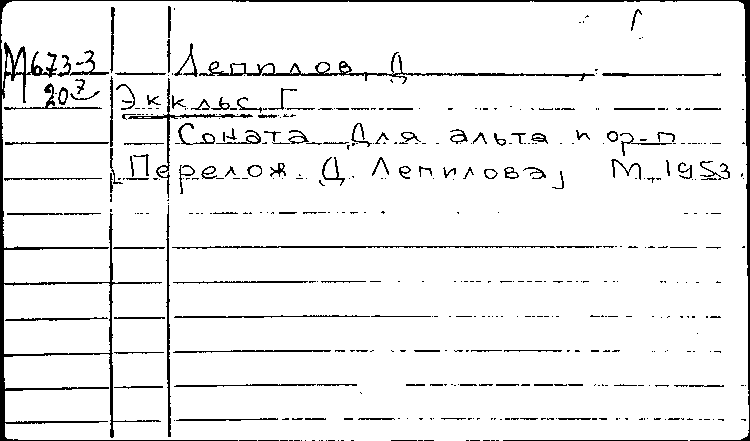 М673-3 Лепилов, Д
20 7 Эккльс, Г
Соната для альта и ор-п
[Перелож. Д. Лепилова] М, 1953.